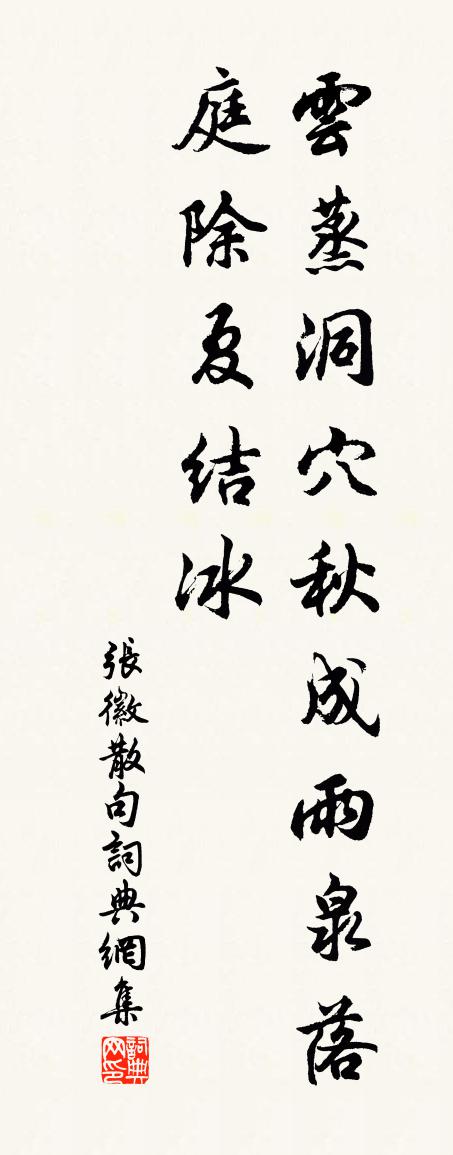 雲蒸洞穴秋成雨泉落
庭除夏結冰
張徽散句詞典網集
詞典网印